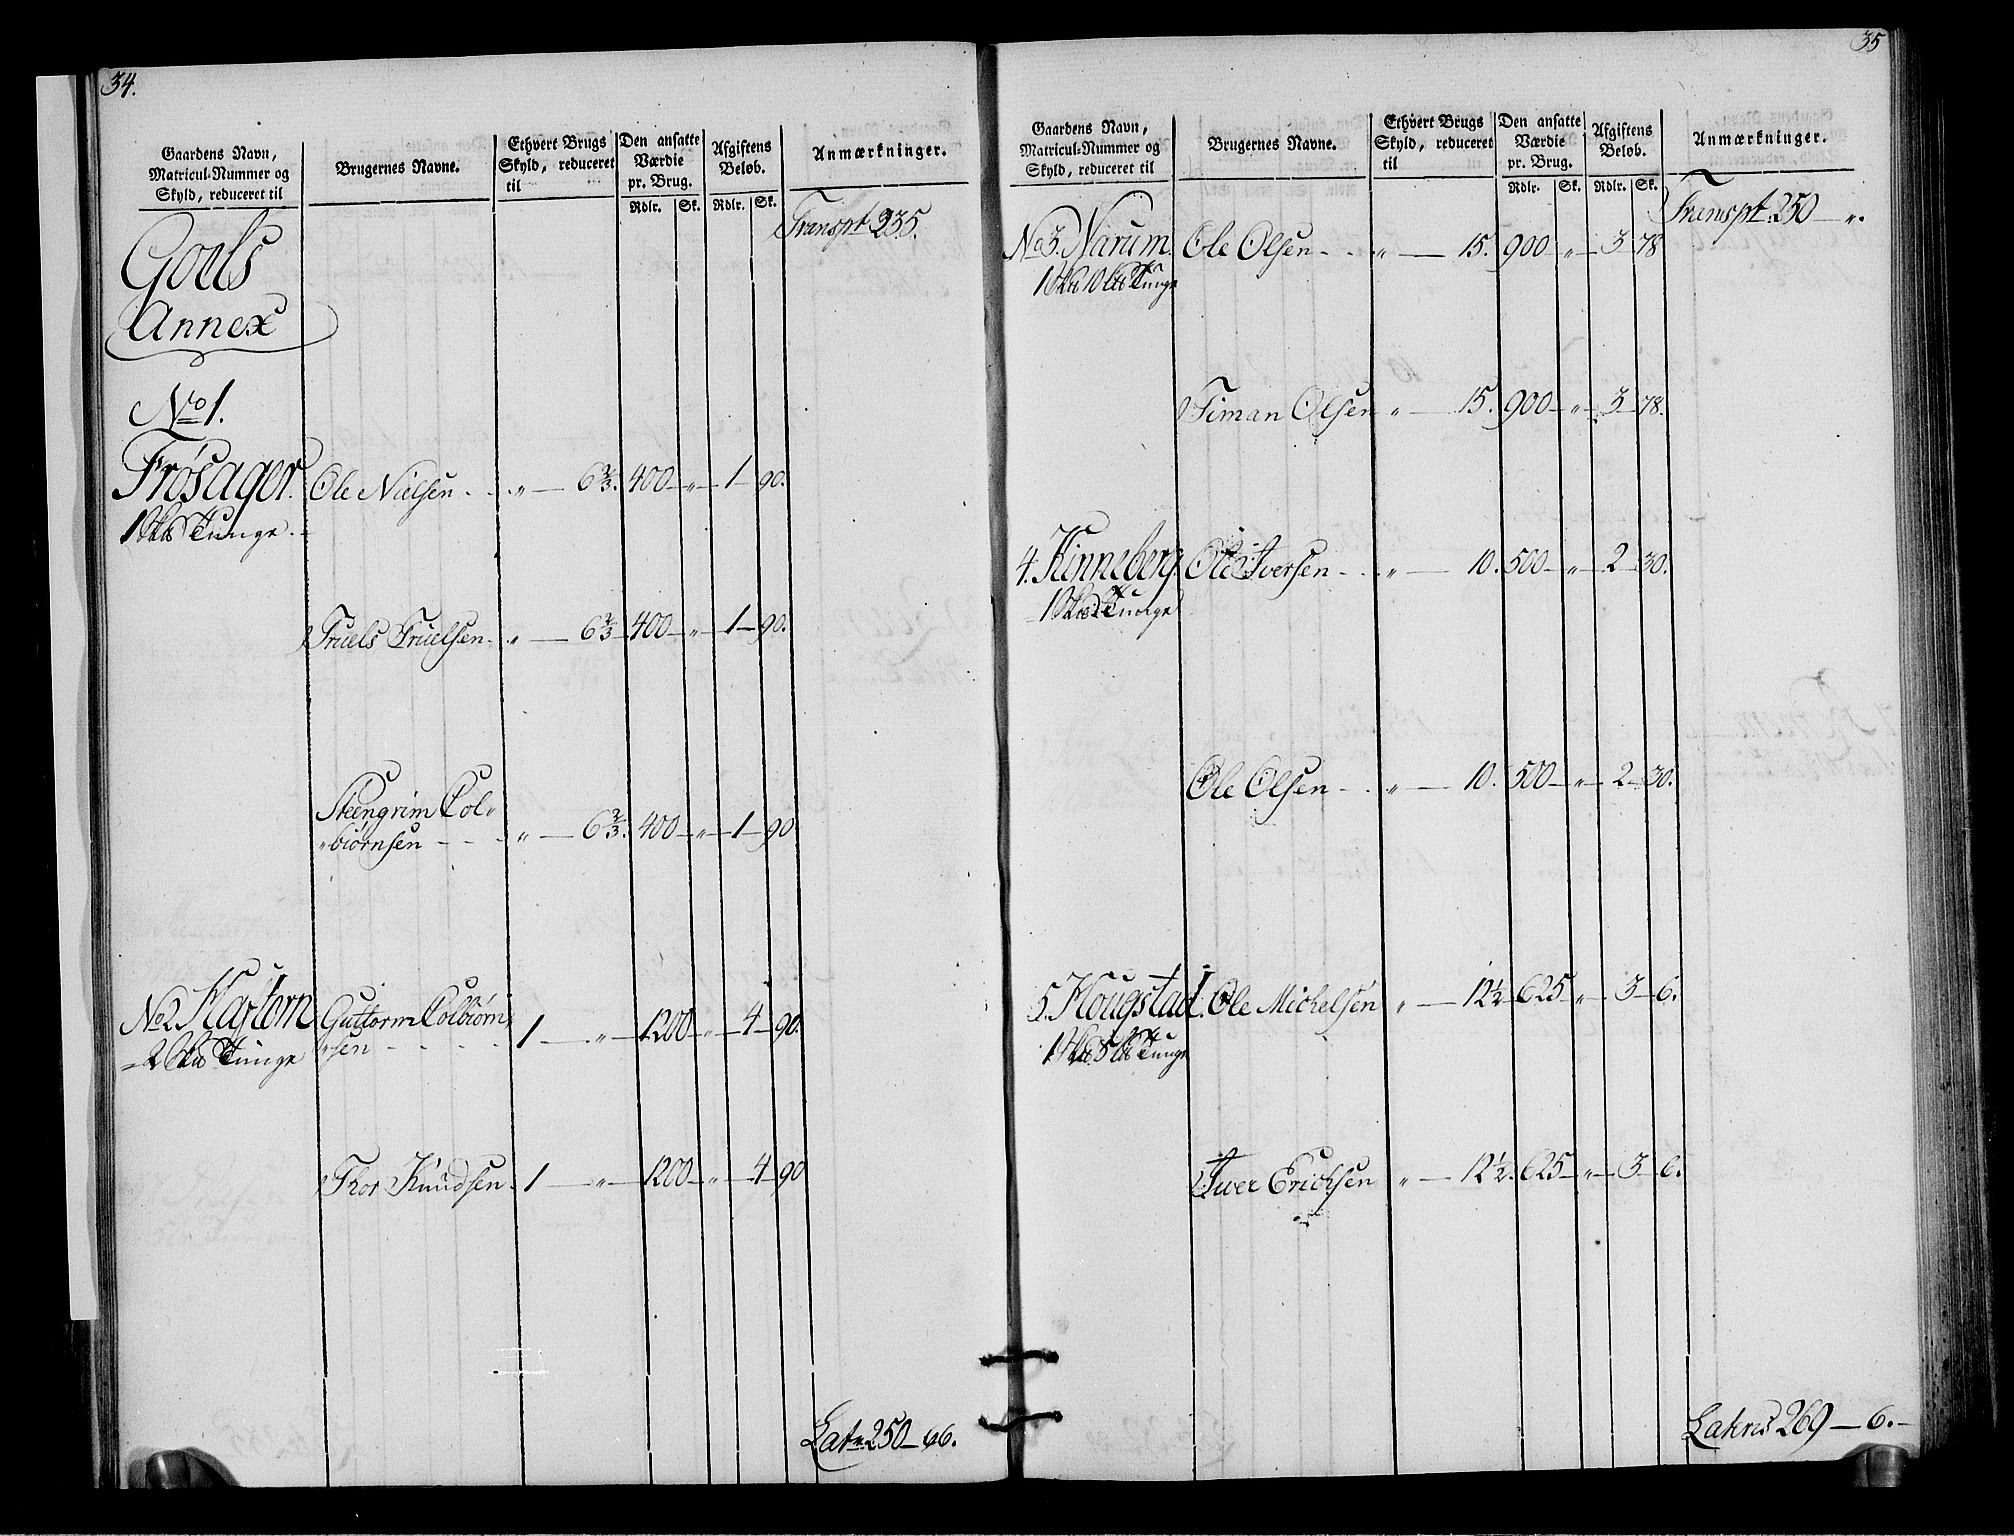 34.
Gaardens Navn,
Matricul-Nummer og
Skyld, reduceret til
Brugernes Navne.
Ethvert Brugs
Skyld, reduceret
til
Den ansatte
Værdie
pr. Brug.
Afgiftens
Beløb.
Anmærkninger.
Rdlr. Sk. Rdlr. Sk.
Transpt 235.
Goels
Annex
No 1.
Frøsager. Ole Nielsen - - „ — 6 2/3. 400 — „ — 1 — 90.
1 Skd Tunge.
Truels Truelsen - „ — 6 2/3 — 400 — „ — 1 — 90.
Steengrim Col„
„biørnsen - - - „ — 6 2/3. 400 — „ — 1 — 90
No 2. Guttorm Colbiørn„
„sen - - - - 1 — „ — 1200 — „ — 4 — 90.
2 Skd Tunge
Thor Knudsen. 1 — „ — 1200 — „ — 4 — 90
Lat 250 — 66.
35
Gaardens Navn,
Matricul-Nummer og
Skyld, reduceret til
Brugernes Navne.
Ethvert Brugs
Skyld, reduceret
til
Den ansatte
Værdie
pr. Brug.
Afgiftens
Beløb.
Anmærkninger.
Rdlr. Sk. Rdlr. Sk.
Transpt. 250 — „.
No 3. Narum. Ole Olsen - - „ — 15. 900 — „ — 3 — 78
1 Skd 10 Tunge
Timan Olsen „ — 15. 900 — „ — 3 — 78.
4. Kinneberg. Ole Iversen - - „ — 10. 500 — „ — 2 — 30.
1 Skd Tunge
Ole Olsen - - „ — 10. 500 — „ — 2 — 30.
5. Hougstad. Ole Michelsen „ — 12 1/2 — 625 — „ — 3 — 6.
1 Skd 5 Tunge
Iver Erichsen „ — 12 1/2. 625 — „ — 3 — 6.
Lateris 269 — 6. —